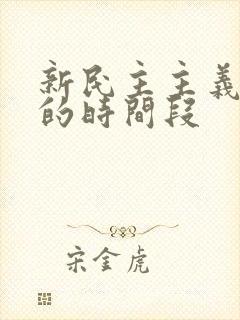 新民主主義
的時間段
宋金虎